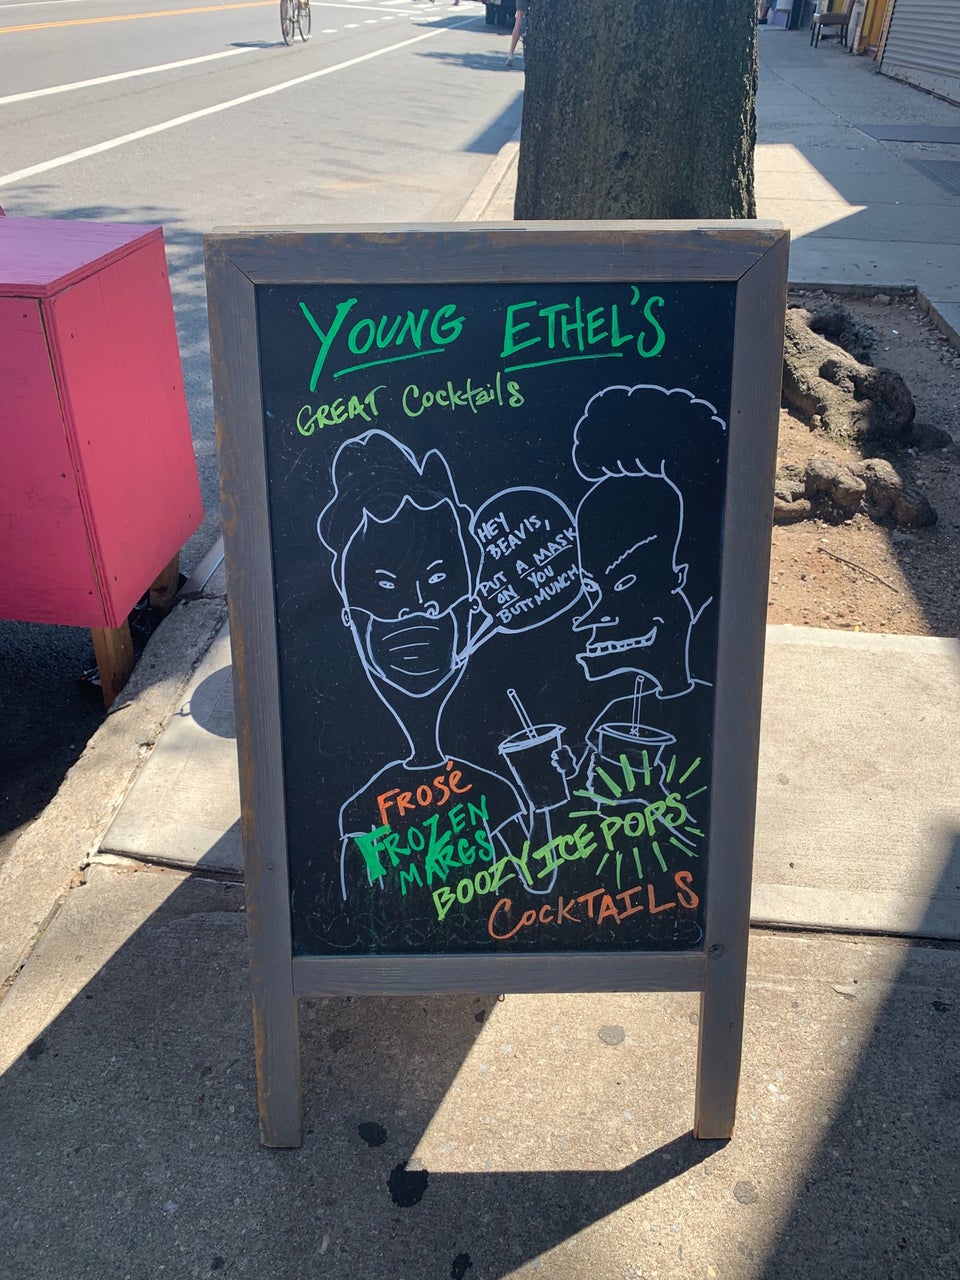 YOUNG ETHEL'S
GREAT Cocktails
HEY
BEAVIS,
PUT A MASK
ON YOU
BUTTMUNCH
FROSÉ
FROZEN
MARGS
BOOZY ICE POPS
COCKTAILS